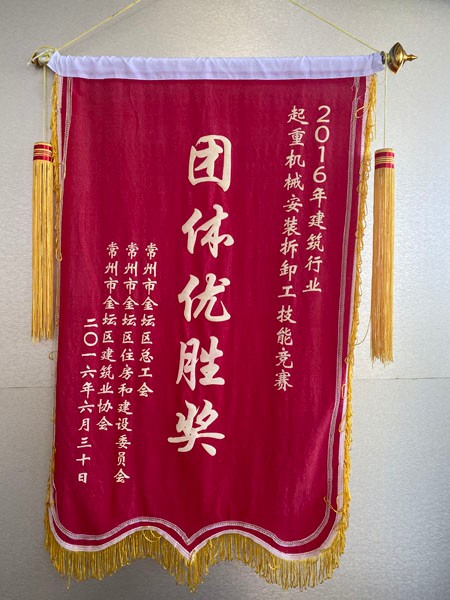 2016年建筑行业
起重机械安装拆卸工技能竞赛
团体优胜奖
常州市金坛区总工会
常州市金坛区住房和建设委员会
常州市金坛区建筑业协会
二〇一六年六月三十日